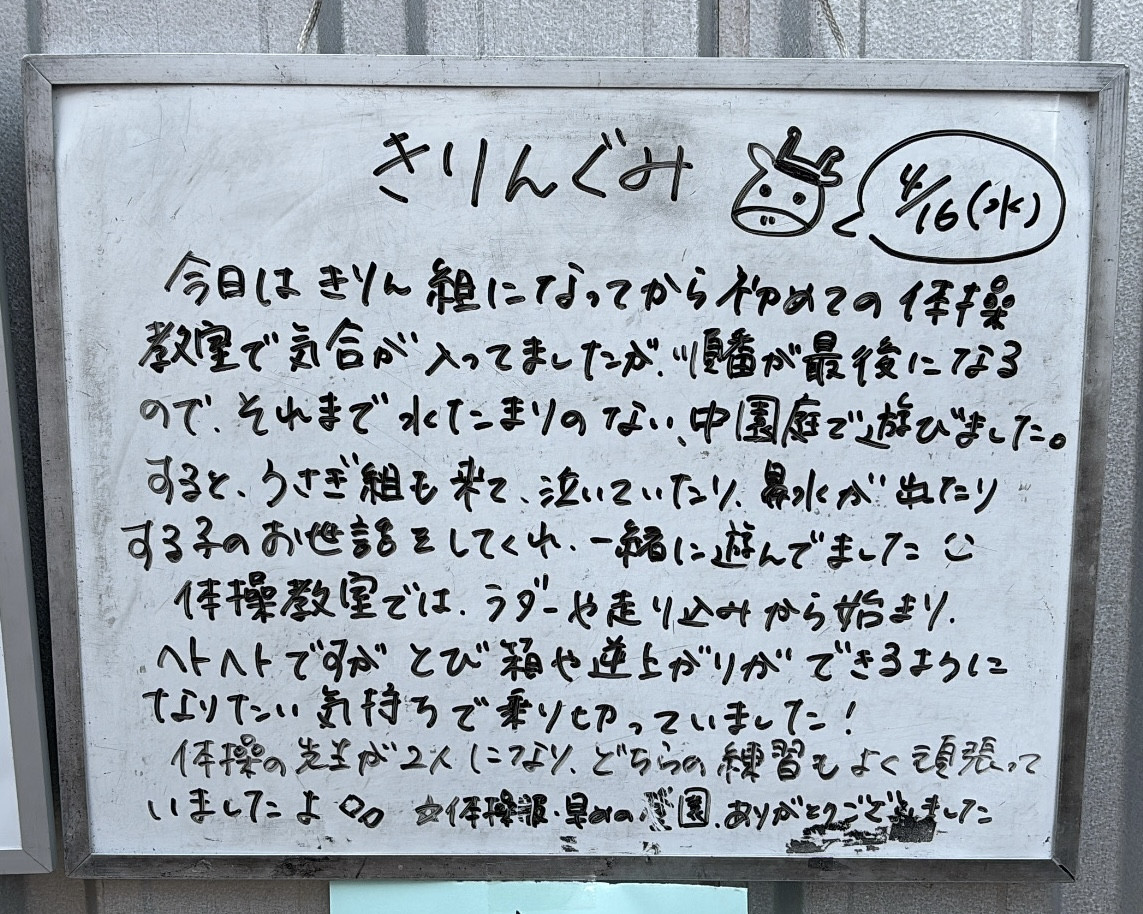 きりんぐみ
4/16(水)
今日はきりん組になってから初めての体操
教室で気合が入ってましたが、順番が最後になる
ので、それまで水たまりのない、中園庭で遊びました。
すると、うさぎ組も来て、泣いていたり、鼻水が出たり
する子のお世話をしてくれ、一緒に遊んでました
体操教室では、ラダーや走り込みから始まり、
ヘトヘトですがとび箱や逆上がりができるように
なりたい気持ちで乗り切っていました!
体操の先生が2人になり、どちらの練習もよく頑張って
いましたよ ☆体操服・早めの登園、ありがとうございました